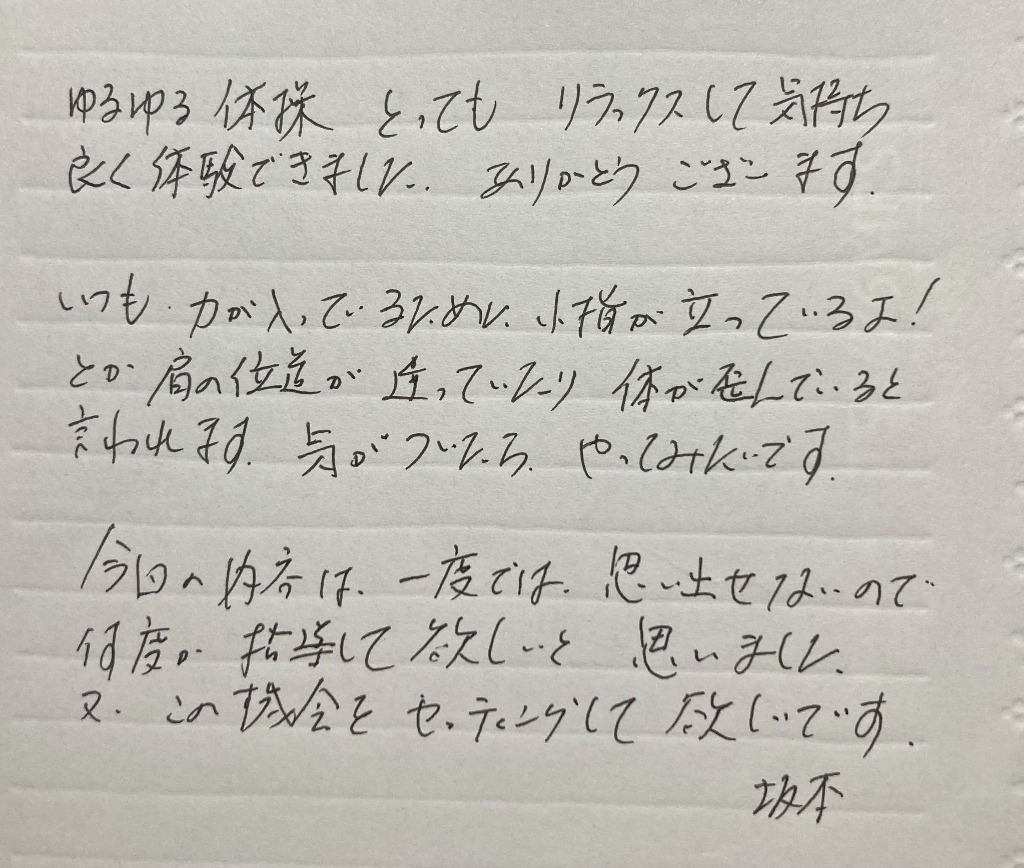 ゆるゆる体操 とっても リラックスして気持ち
良く体験できました. ありがとう ございます.
いつも 力が入っているために 小指が立っているよ!
とか 肩の位置が 違っていたり 体が歪んでいると
言われます. 気がついたら. やってみたいです.
今回の内容は. 一度では. 思い出せないので
何度か 指導して欲しいと 思いました.
又. この機会を セッティングして 欲しいです.
坂本